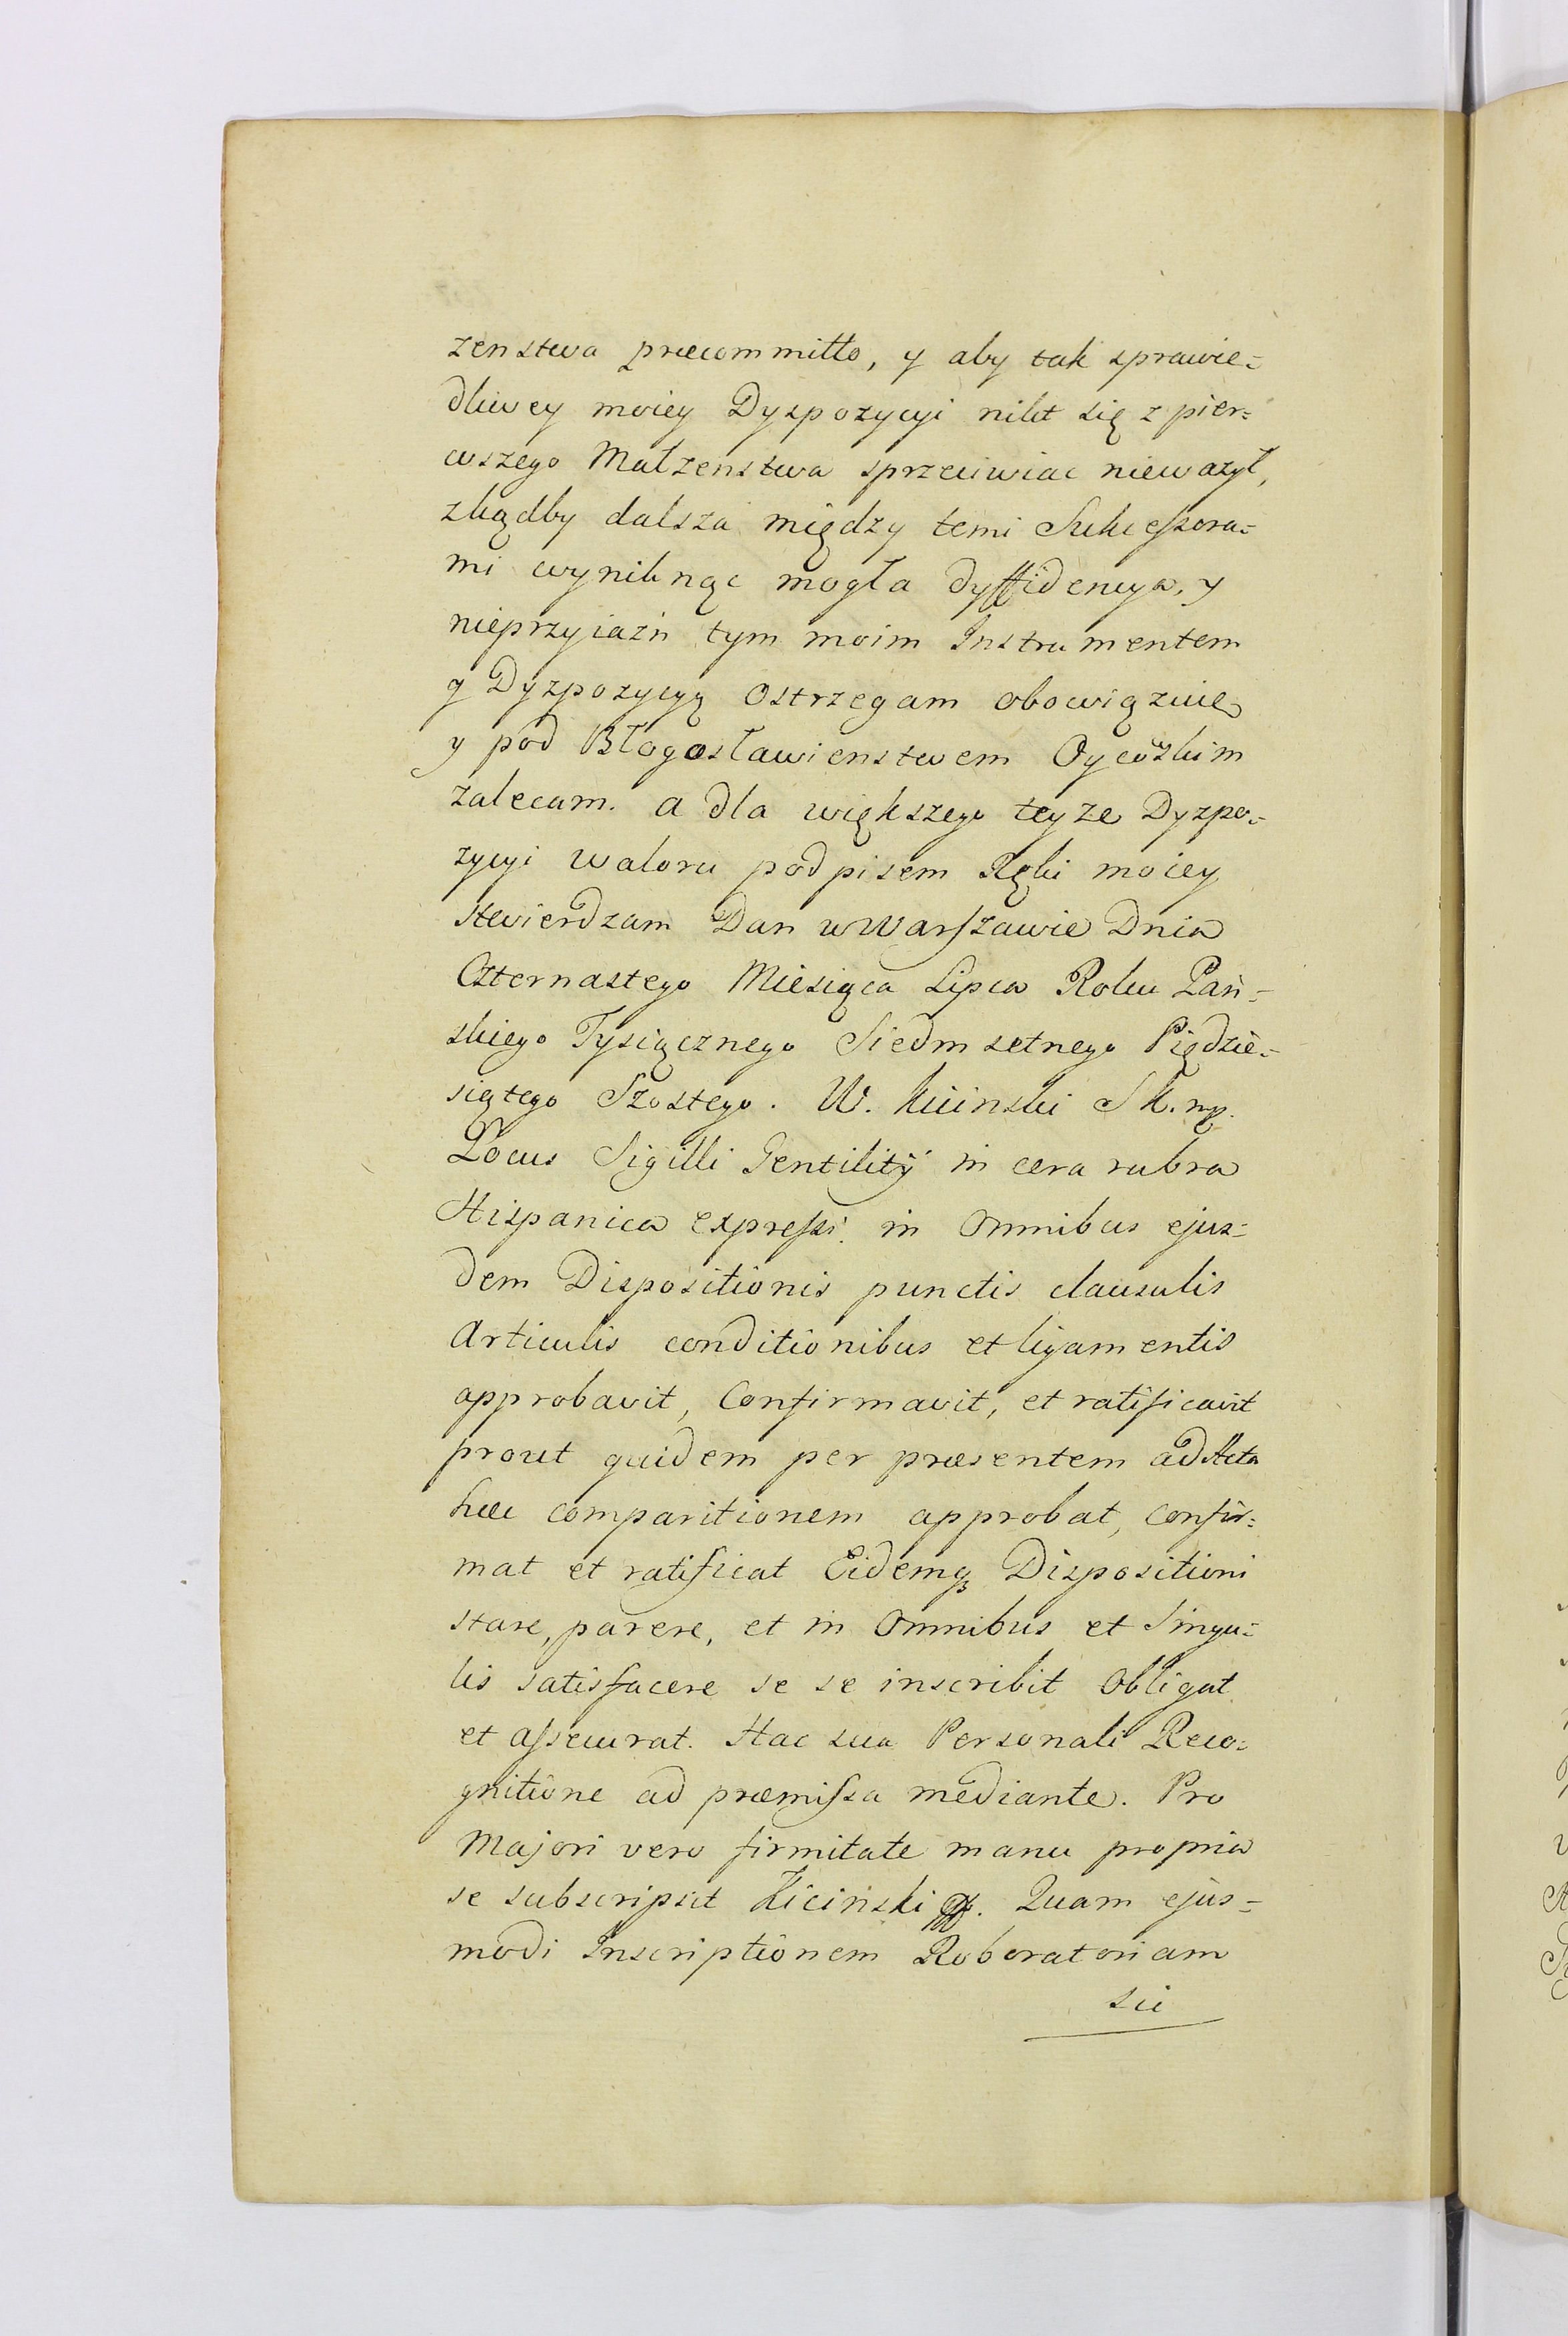 zenstwa præcommitto, y aby tak sprawie=
dliwey moiey Dyspozycyi nikt się z pier=
wszego Małzenstwa sprzeciwiac nieważył,
zkądby dalsza między temi Sukceszora=
mi wyniknąc mogła dyffidencya, y
nieprzyiazń tym moim Instrumentem
y Dyzpozycyą Ostrzegam obowięzuię
y pod Błogosławienstwem Oycowzkim
zalecam. a dla większego teyze Dyzpo=
zycyi waloru podpisem Ręki moiey
stwierdzam Dan w Warszawie Dnia
Czternastego Miesiąca Lipca Roku Pań=
skiego Tysiącznego Siedmsetnego Piędzie=
siątego Szostego. W. Kicinski S K. mp.
Locus Sigilli Gentilitÿ in cera rubra
Hispanica expressi. in Omnibus ejus=
dem Dispositionis punctis clausulis
Articulis conditionibus et ligamentis
approbavit, Confirmavit, et ratificavit
prout quidem per præsentem ad Acta
hæc comparitionem approbat, confir=
mat et ratificat Eidemq3 Dispositioni
stare, parere, et in Omnibus et Singu=
lis satisfacere se se inscribit Obligat
et assecurat. Hac sua Personali Reco=
gnitione ad præmissa mediante. Pro
Majori vero firmitate manu propria
se subscripsit Kiciński. Quam ejus=
modi Inscriptionem Roboratoriam
sic